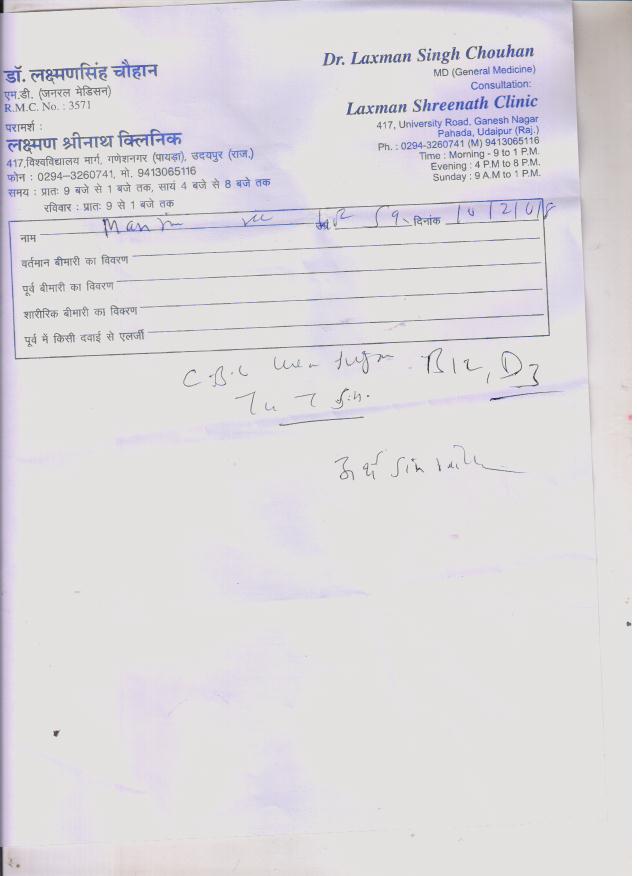 डॉ. लक्ष्मणसिंह चौहान
एम.डी. (जनरल मेडिसन)
R.M.C. No. : 3571
परामर्श :
लक्ष्मण श्रीनाथ क्लिनिक
417,विश्वविद्यालय मार्ग, गणेशनगर (पायड़ा), उदयपुर (राज.)
फोन : 0294-3260741, मो. 9413065116
समय : प्रातः 9 बजे से 1 बजे तक, सायं 4 बजे से 8 बजे तक
रविवार : प्रातः 9 से 1 बजे तक
Dr. Laxman Singh Chouhan
MD (General Medicine)
Consultation:
Laxman Shreenath Clinic
417, University Road, Ganesh Nagar
Pahada, Udaipur (Raj.)
Ph. : 0294-3260741 (M) 9413065116
Time : Morning - 9 to 1 P.M.
Evening : 4 P.M to 8 P.M.
Sunday : 9 A.M to 1 P.M.
नाम दिनांक
वर्तमान बीमारी का विवरण
पूर्व बीमारी का विवरण
शारीरिक बीमारी का विवरण
पूर्व में किसी दवाई से एलर्जी
B12, D3